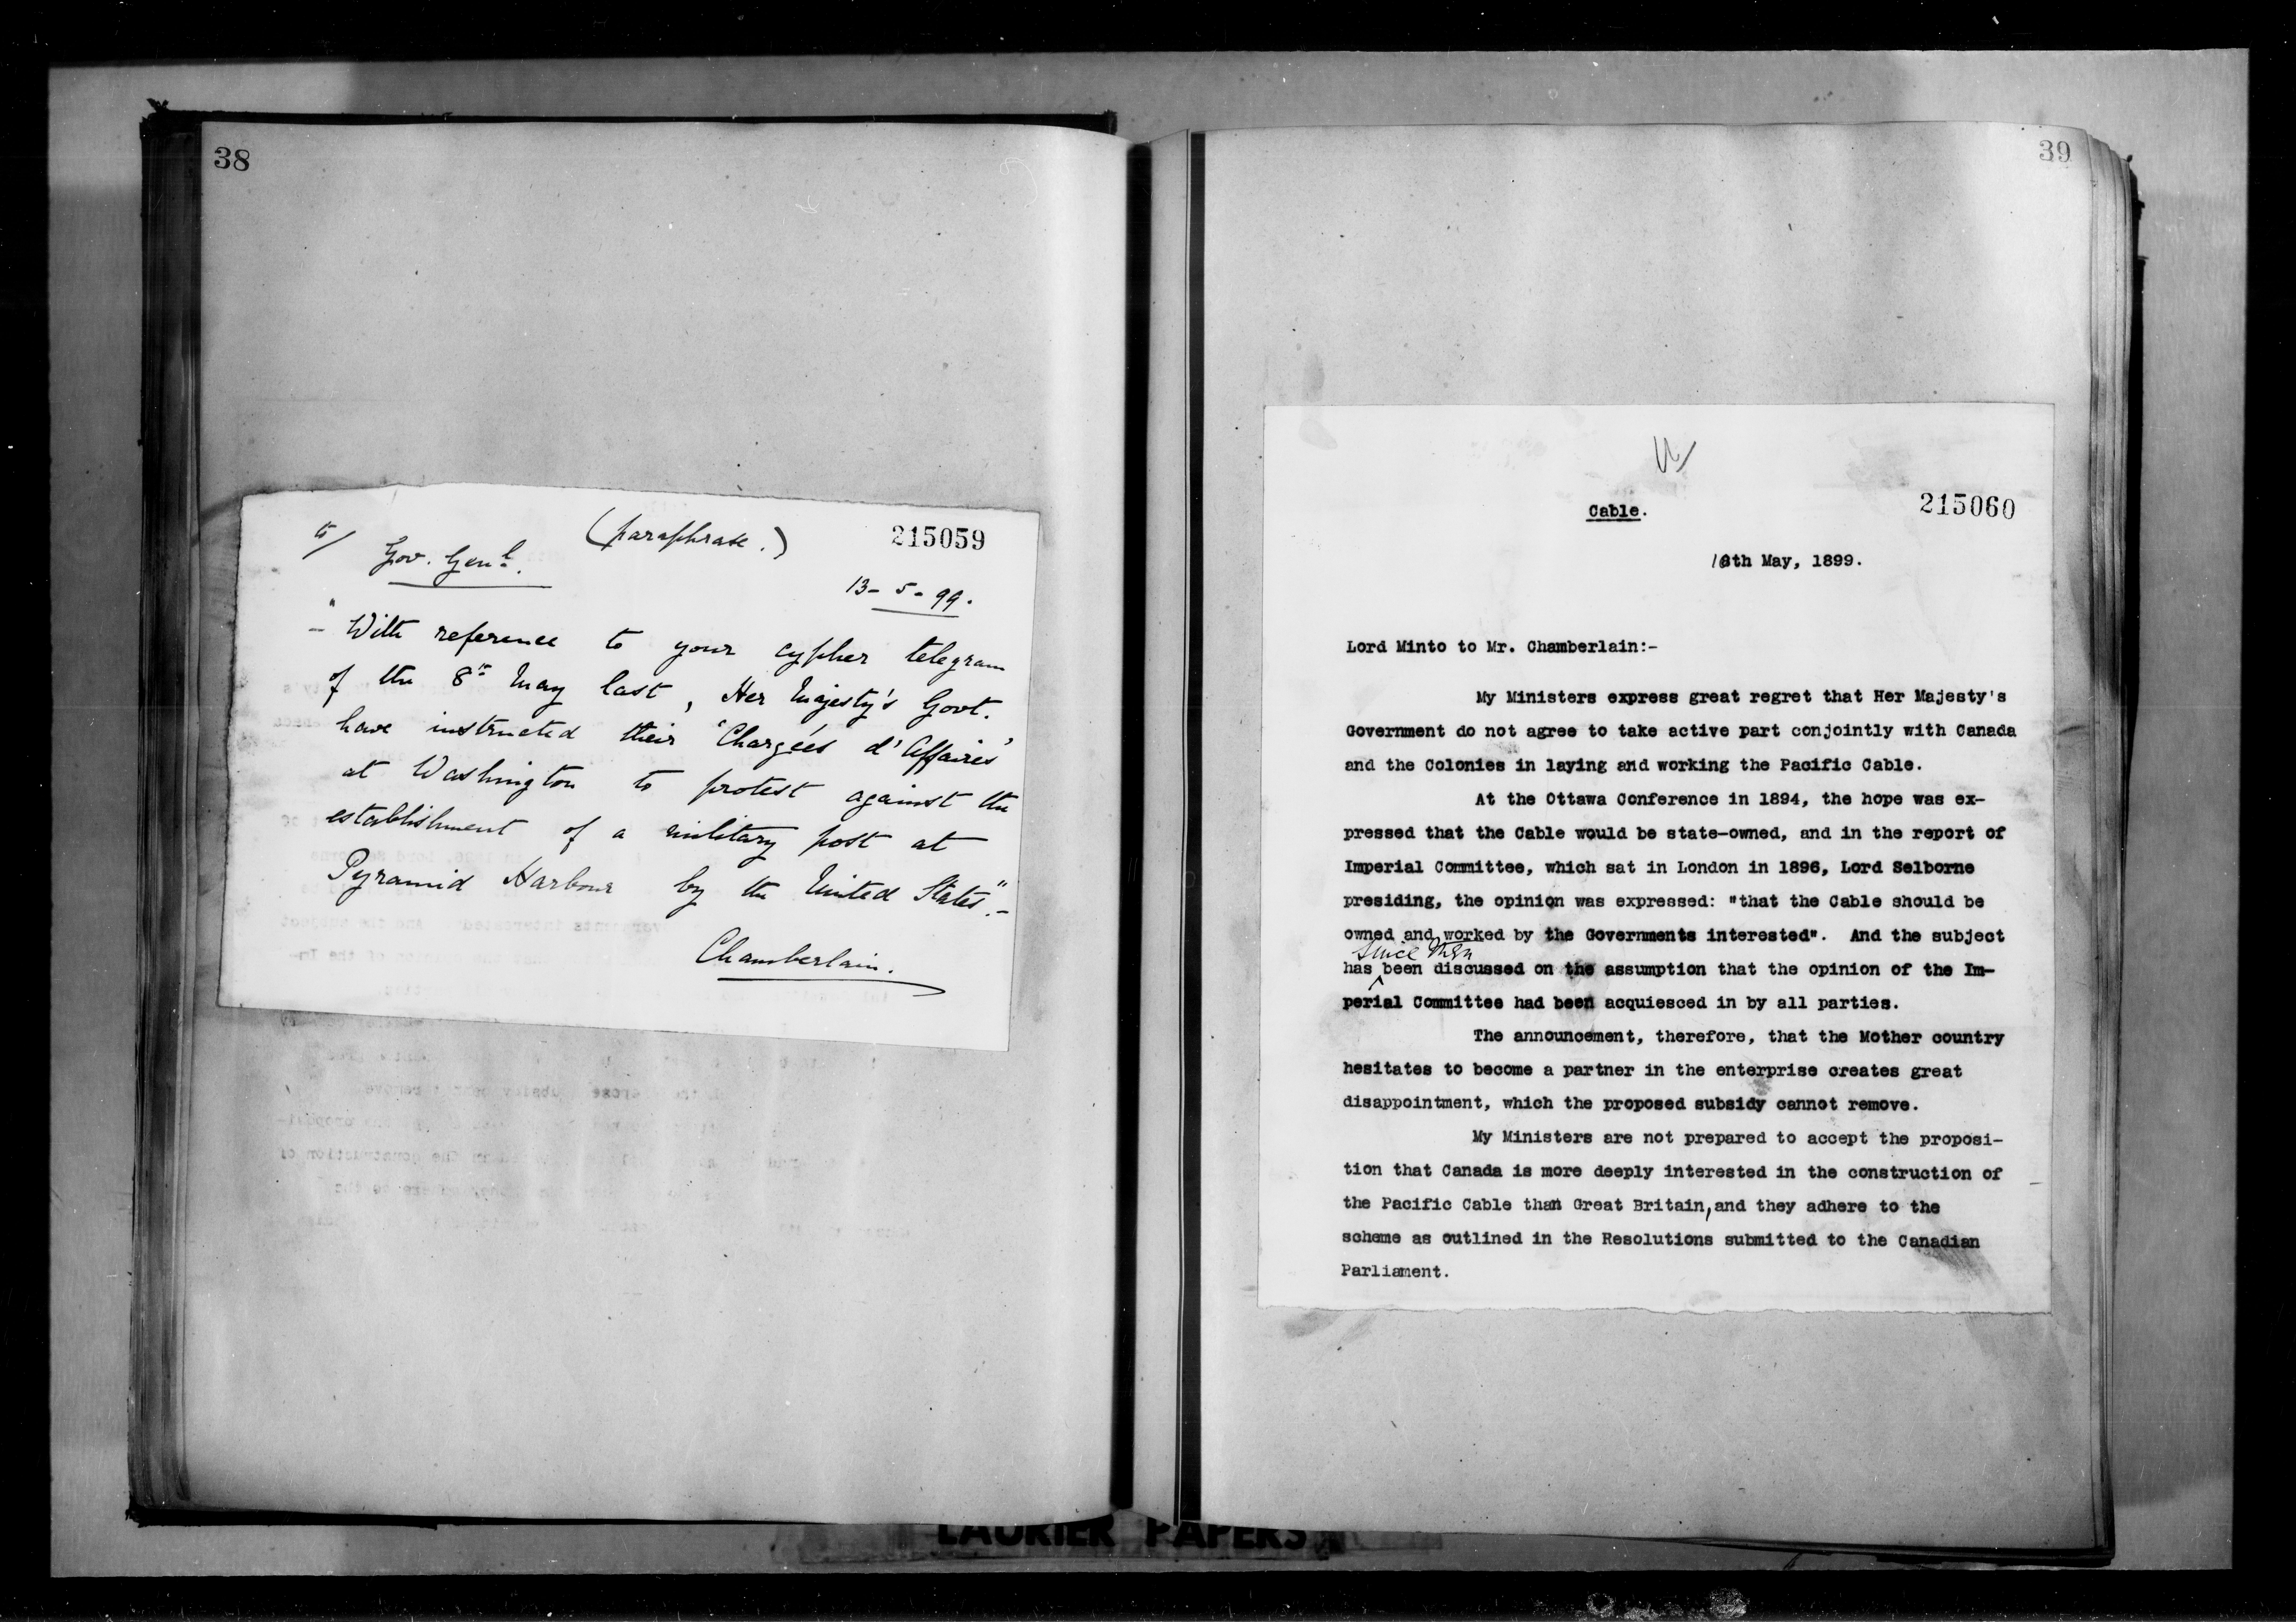 38
to/
(Paraphrase.)
215059
Gov. Genl.
13-5-99.
"- With reference to your cypher telegram
of the 8th May last, Her Majesty's Govt.
have instructed their 'Chargées d'Affaires'
at Washington to protest against the
establishment of a military post at
Pyramid Harbour by the United States."-
Chamberlain.
39
Cable.
215060
th May, 1899.
Lord Minto to Mr. Chamberlain:-
My Ministers express great regret that Her Majesty's
Government do not agree to take active part conjointly with Canada
and the Colonies in laying and working the Pacific Cable.
At the Ottawa Conference in 1894, the hope was ex-
pressed that the Cable would be state-owned, and in the report of
Imperial Committee, which sat in London in 1896, Lord Selborne
presiding, the opinion was expressed: "that the Cable should be
owned and worked by the Governments interested". And the subject
since then
has been discussed on the assumption that the opinion of the Im-
perial Committee had been acquiesced in by all parties.
The announcement, therefore, that the Mother country
hesitates to become a partner in the enterprise creates great
disappointment, which the proposed subsidy cannot remove.
My Ministers are not prepared to accept the proposi-
tion that Canada is more deeply interested in the construction of
the Pacific Cable than Great Britain, and they adhere to the
scheme as outlined in the Resolutions submitted to the Canadian
Parliament.
LAURIER PAPERS